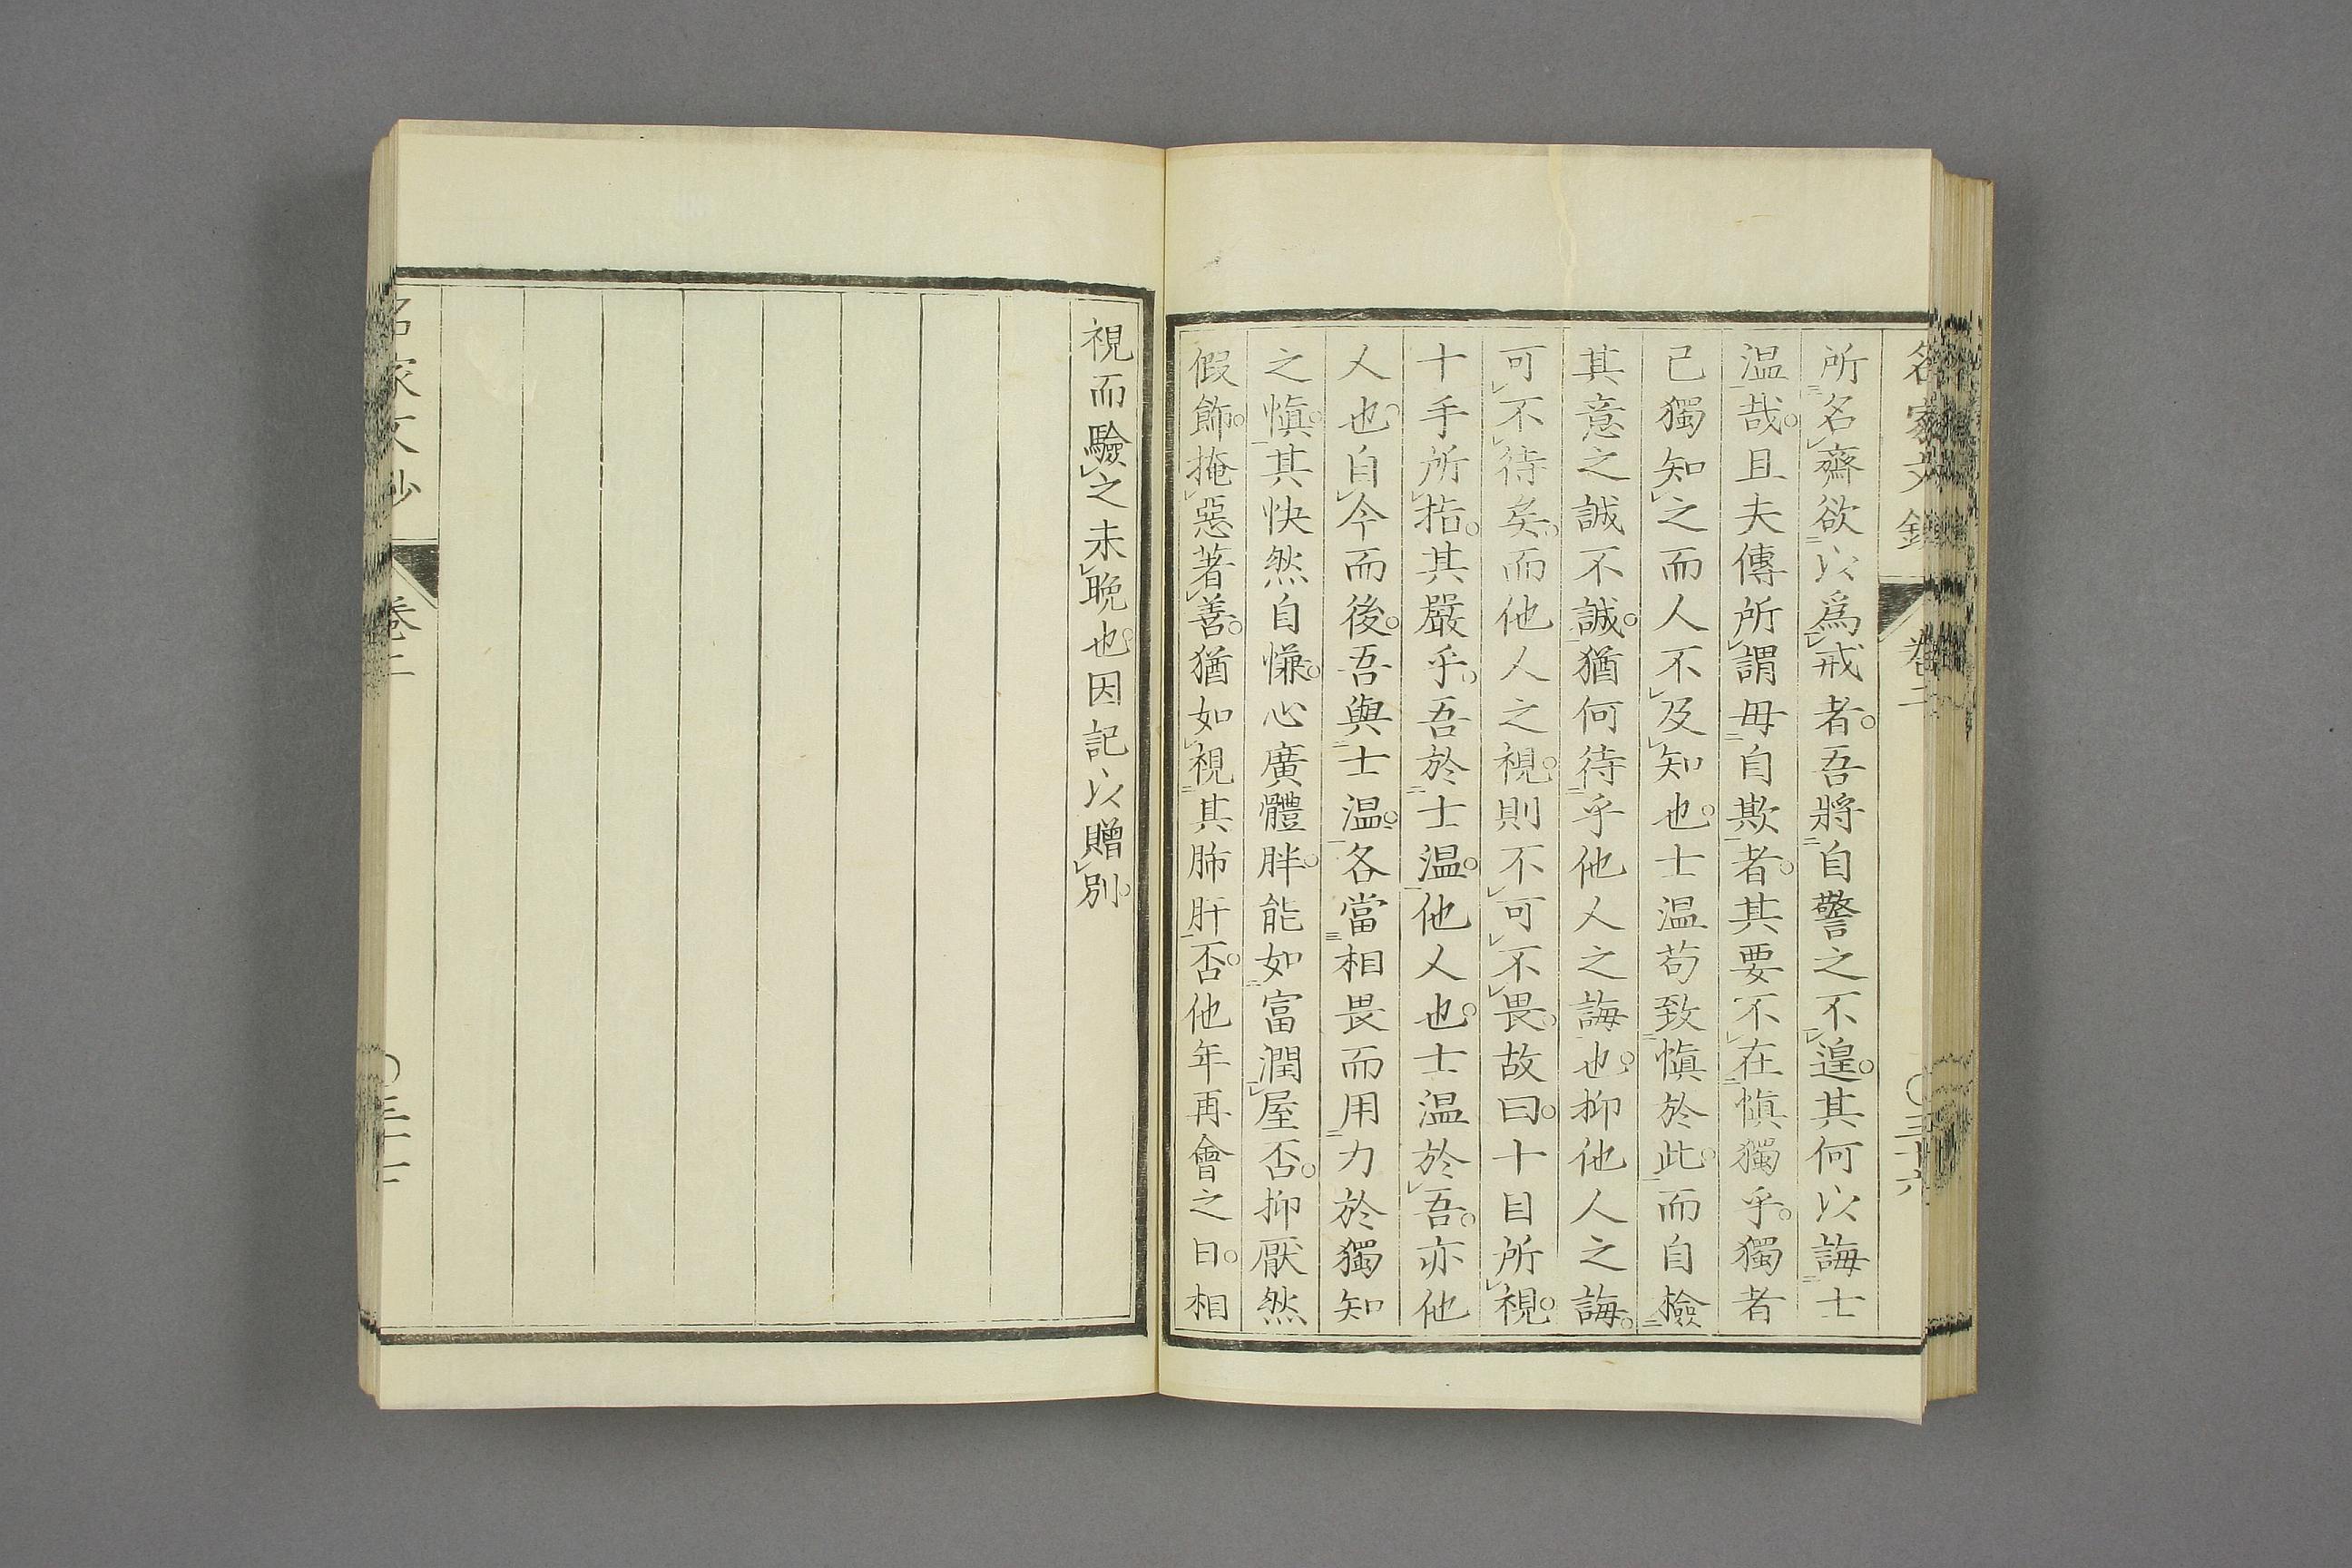 所名齋欲以爲戒者吾將自警之不遑其何以誨士
温哉且夫傳所謂毋自欺者其要不在愼獨乎獨者
己獨知之而人不及知也士温苟致愼於此而自檢
其意之誠不誠猶何待乎他人之誨也抑他人之誨
可不待矣而他人之視則不可不畏故曰十目所視
十手所指其嚴乎吾於士温他人也士温於吾亦他
人也自今而後吾與士温各當相畏而用力於獨知
之愼其快然自慊心廣體胖能如富潤屋否抑厭然
假飾掩惡著善猶如視其肺肝否他年再會之日相
視而驗之未晩也因記以贈別
名家文鈔
卷二